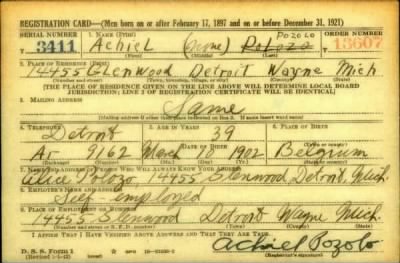 REGISTRATION CARD—(Men born on or after February 17, 1897 and on or before December 31, 1921)
SERIAL NUMBER 1. NAME (Print) ORDER NUMBER
T 3411 Achiel (none) Pozozo Pozozo T 13607
(First) (Middle) (Last)
2. PLACE OF RESIDENCE (Print)
14455 Glenwood Detroit Wayne Mich
(Number and street) (Town, township, village, or city) (County) (State)
[THE PLACE OF RESIDENCE GIVEN ON THE LINE ABOVE WILL DETERMINE LOCAL BOARD
JURISDICTION; LINE 2 OF REGISTRATION CERTIFICATE WILL BE IDENTICAL]
3. MAILING ADDRESS
Same
[Mailing address if other than place indicated on line 2. If same insert word same]
4. TELEPHONE 5. AGE IN YEARS 6. PLACE OF BIRTH
Detroit 39
DATE OF BIRTH
Ar 9162 March 1902 Belgium
(Exchange) (Number) (Mo.) (Day) (Yr.) (State or country)
7. NAME AND ADDRESS OF PERSON WHO WILL ALWAYS KNOW YOUR ADDRESS
Alice Pozozo 14455 Glenwood Detroit, Mich.
8. EMPLOYER'S NAME AND ADDRESS
Self-employed
9. PLACE OF EMPLOYMENT OR BUSINESS
14455 Glenwood Detroit Wayne Mich.
(Number and street or R. F. D. number) (Town) (County) (State)
I AFFIRM THAT I HAVE VERIFIED ABOVE ANSWERS AND THAT THEY ARE TRUE.
D. S. S. Form 1
Achiel Pozozo
(Registrant's signature)